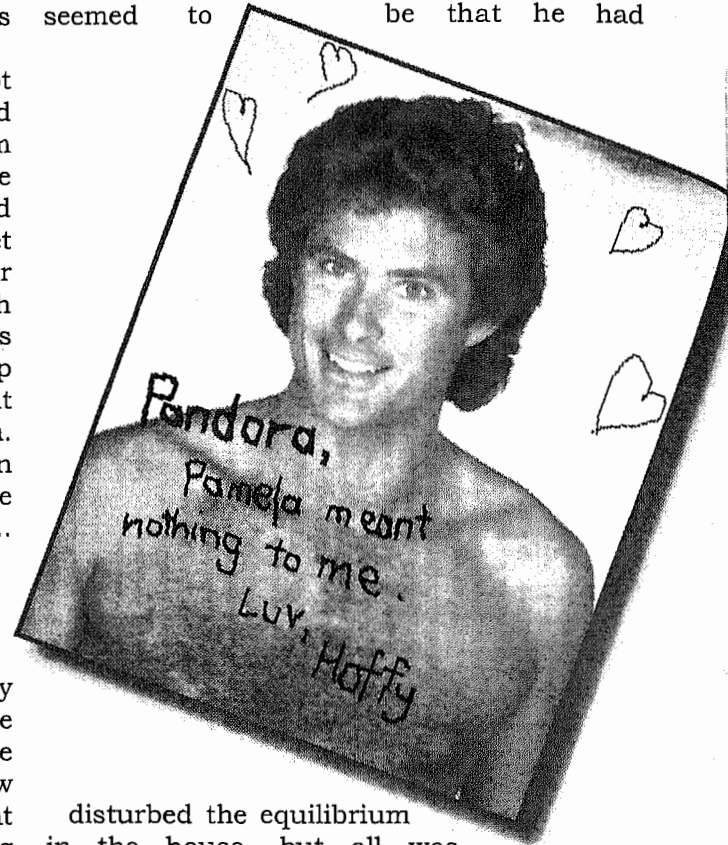 seemed to be that he had
Pandora,
Pamela meant
nothing to me.
Luv,
Hoffy
disturbed the equilibrium
in the house, but all was